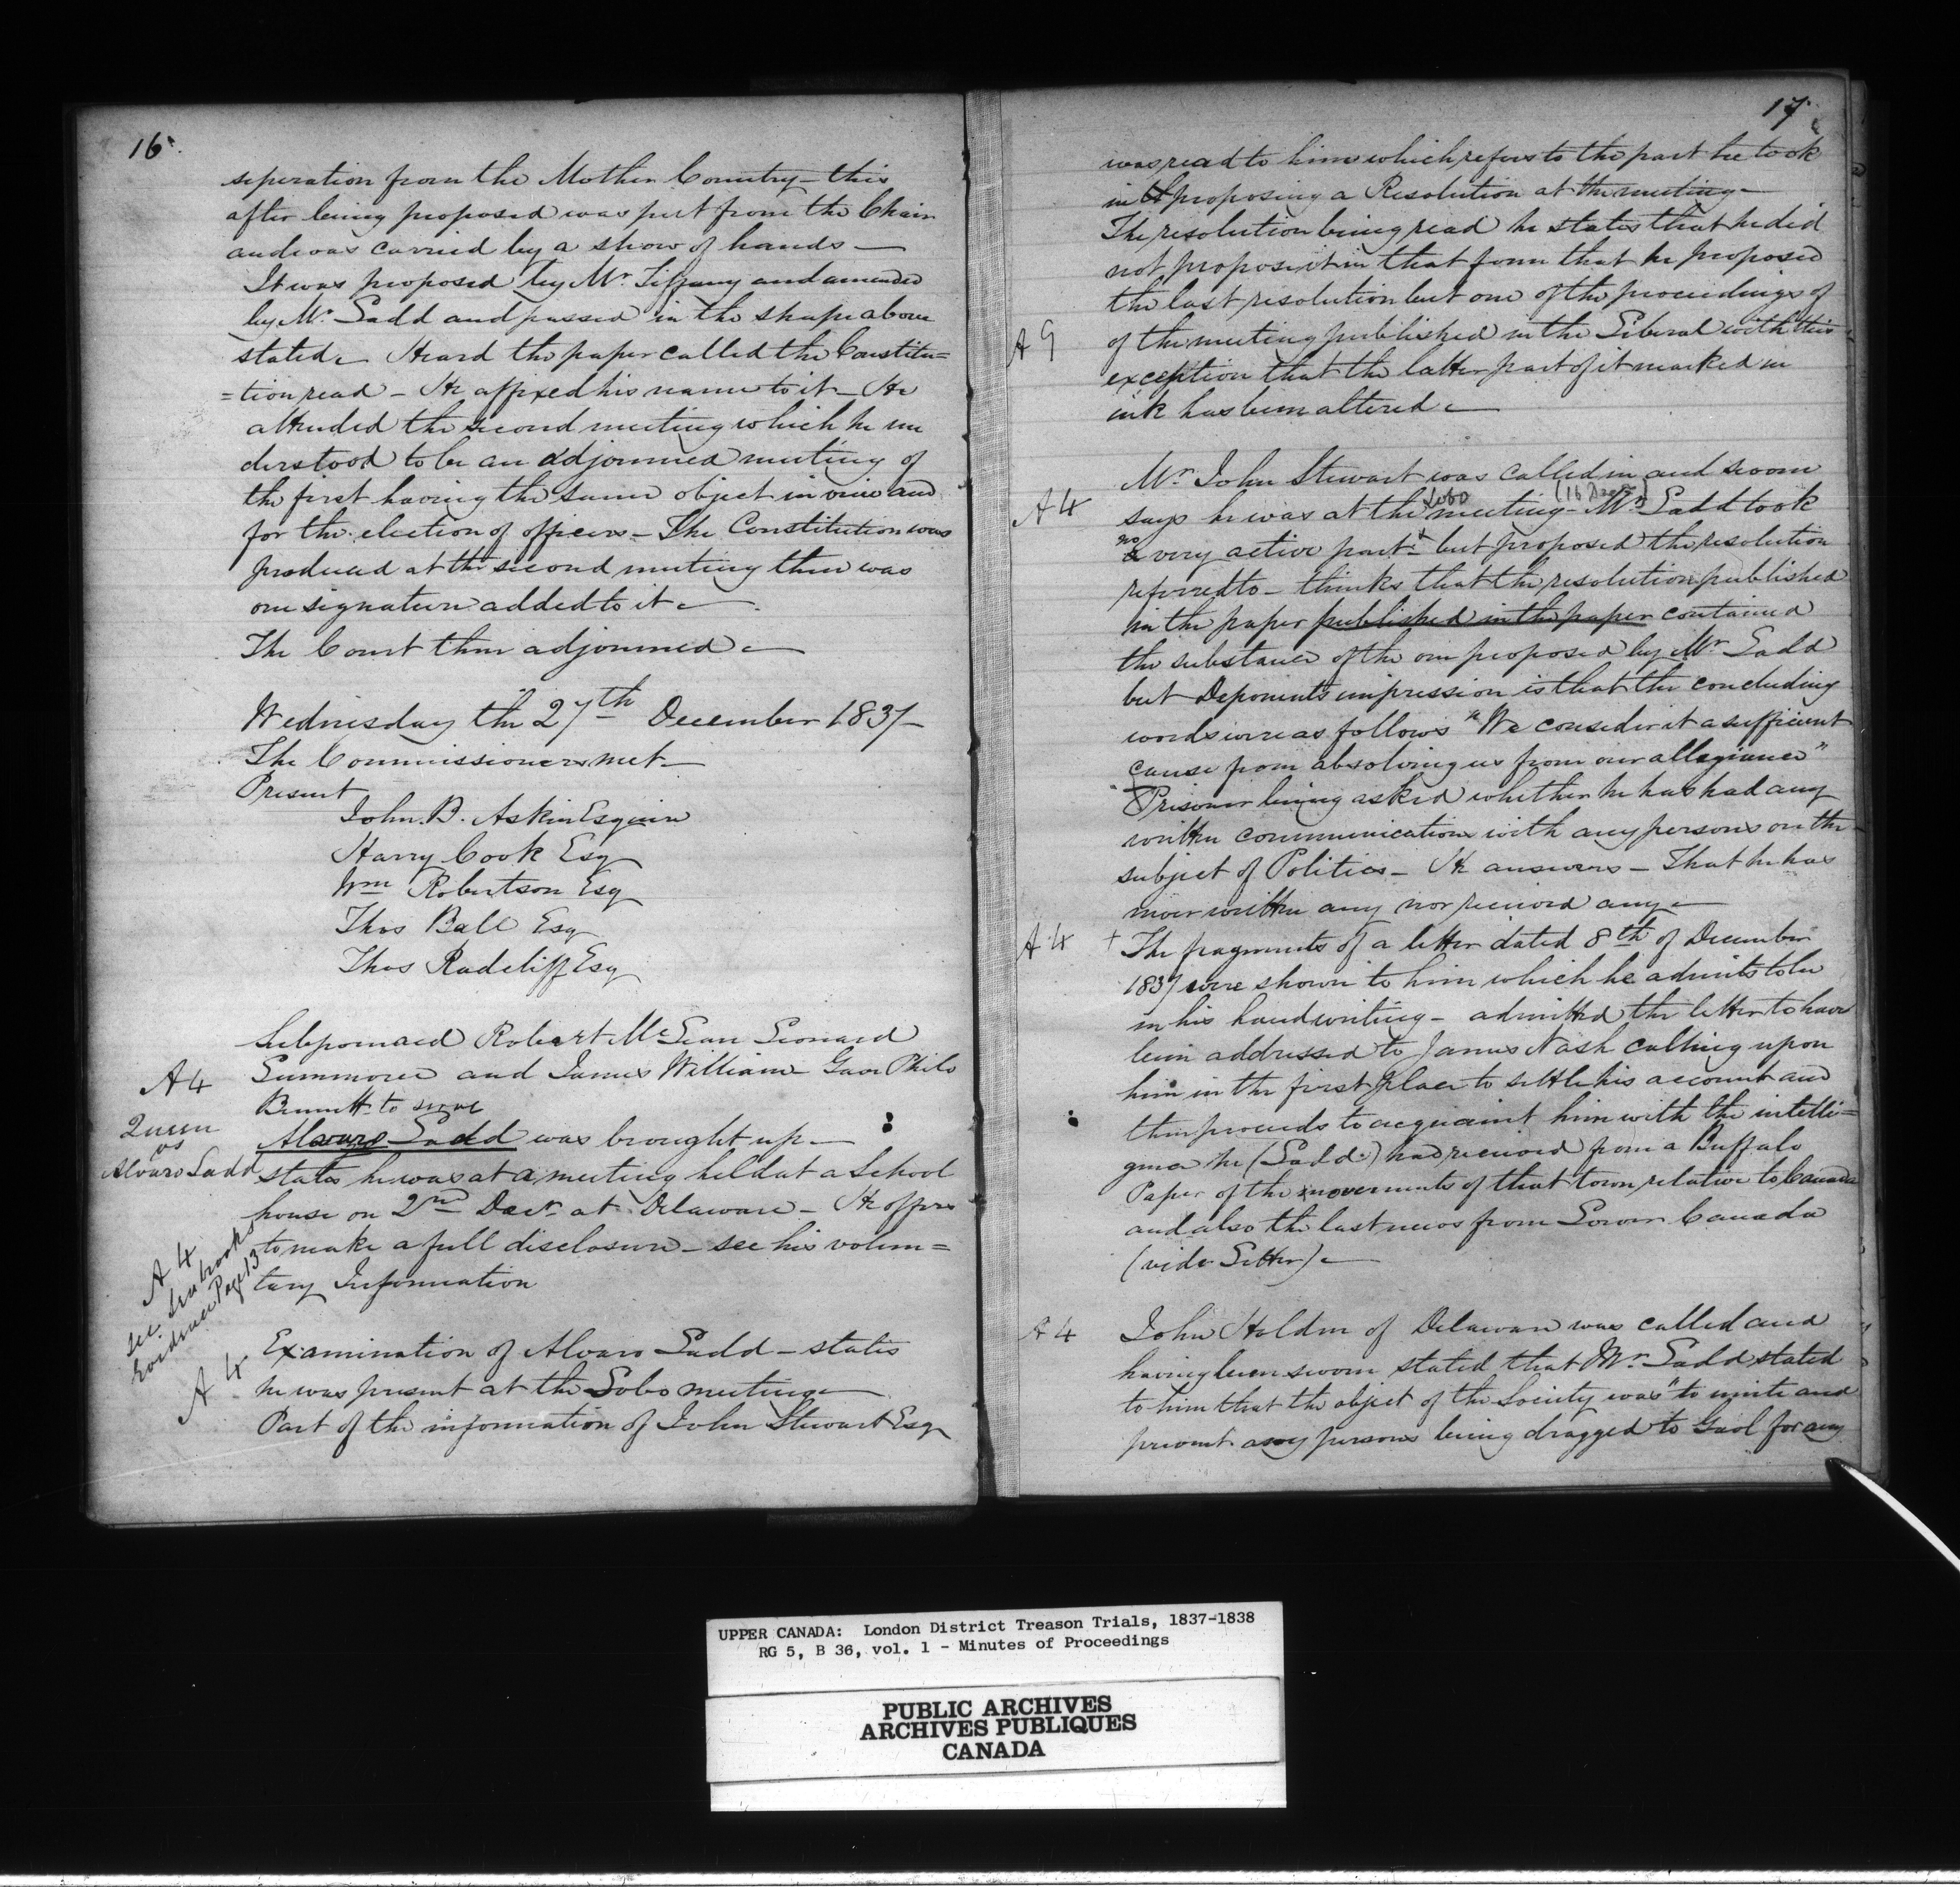 16.
seperation from the Mother Country – this
after being proposed was put from the Chair
and was carried by a show of hands –
It was proposed by Mr Tiffany and amended
by Mr Ladd and passed in the shape above
stated – Heard the paper called the Constitu=
=tion read – He affixed his name to it – He
attended the second meeting which he un
derstood to be an adjourned meeting of
the first having the same object in view and
for the election of officers – The Constitution was
produced at the second meeting there was
one signature added to it –
The Court then adjourned –
Wednesday the 27th December 1837 –
The Commissioners met –
Present
John B. Askin Esquire
Harry Cook Esq
Wm Robertson Esq
Thos Ball Esq
Thos Radcliff Esq
Subpoenaed Robert McLean Leonard
A 4
Summoned and James William Philo
Bennett to serve
Queen
vs
Alvaro Ladd
Alvaro Ladd was brought up –
states he was at a meeting held at a School
house on 2nd Decr at Delaware – He offers
to make a full disclosure – see his volun=
tary Information
A 4
see Seabrooks
Evidence Page 13
A 4
Examination of Alvaro Ladd – states
he was present at the Lobo meeting –
Part of the information of John Stewart Esq
17
was read to him which refers to the part he took
in proposing a Resolution at the meeting –
The resolution being read he states that he did
not propose it in that form that he proposed
the last resolution but one of the proceedings of
A 9
of the meeting published in the Liberal with this
exception that the latter part of it marked in
ink has been altered –
Mr John Stewart was called in and sworn
A 4
says he was at the Lobo meeting – (16 Decr) Mr Ladd took
no very active part but proposed the resolution
referred to – thinks that the resolution published
in the paper published in the paper contained
the substance of the one proposed by Mr Ladd
but Deponents impression is that the concluding
words were as follows "We consider it a sufficient
cause from absolving us from our allegiance"
Prisoner being asked whether he has had any
written communications with any persons on the
subject of Politics – He answers – That he has
never written any nor received any –
A 4
+ The fragments of a letter dated 8th of December
1837 were shown to him which he admits to be
in his handwriting – admitted the letter to have
been addressed to James Nash calling upon
him in the first place to settle his account and
then proceeds to acquaint him with the intelli=
gence he (Ladd) had received from a Buffalo
Paper of the movements of that town relative to Canada
and also the last news from Lower Canada
(vide Letter) –
A 4
John Holden of Delaware was called and
having been sworn stated that Mr Ladd stated
to him that the object of the Society was "to unite and
prevent any persons being dragged to Gaol for any
UPPER CANADA: London District Treason Trials, 1837-1838
RG 5, B 36, vol. 1 - Minutes of Proceedings
PUBLIC ARCHIVES
ARCHIVES PUBLIQUES
CANADA